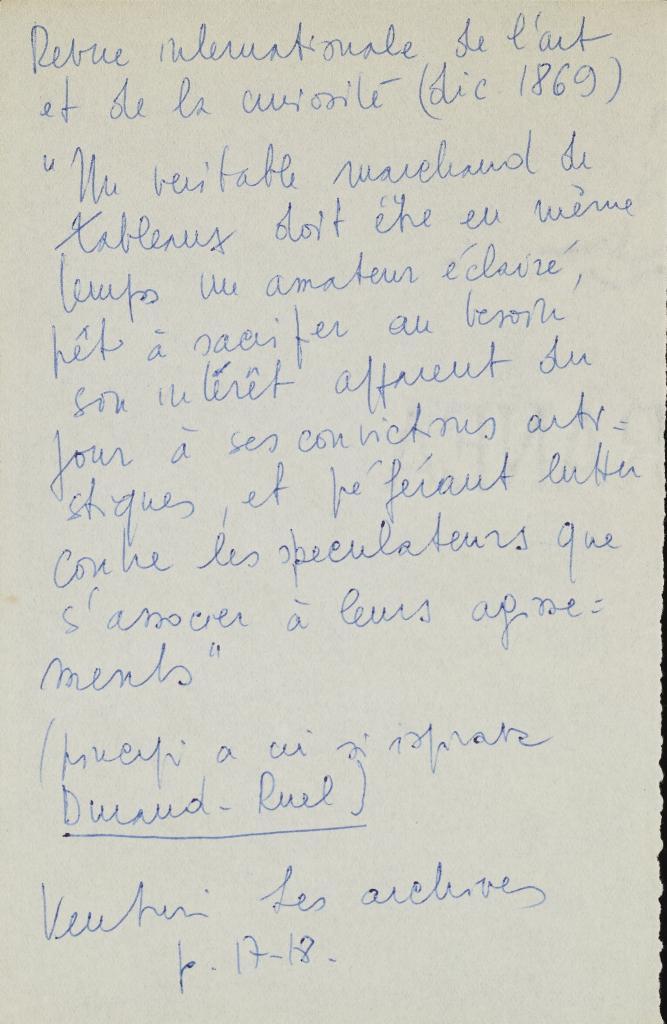 Revue internationale de l'art
et de la curiosité (dic 1869)
"Un veritable marchand de
tableaux doit être en même
temps un amateur éclairé,
prêt à sacrifer au besoin
son intérêt apparent du
jour à ses convictions arti=
stiques, et préférant lutter
contre les speculateurs que
s'associer à leurs agisse=
ments"
(principi a cui si ispirate
Durand-Ruel)
Venturi Les archives
p. 17-18.